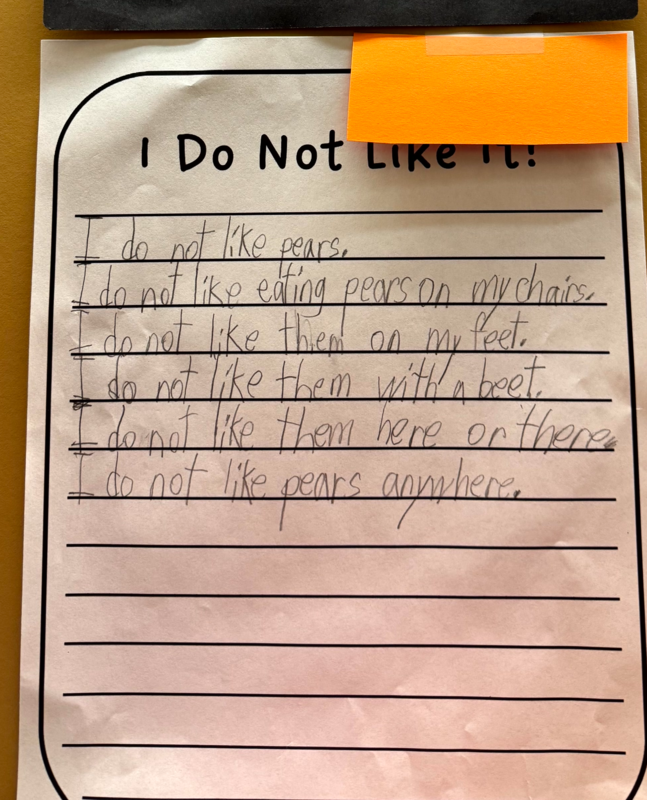 I Do Not Like It!
I do not like pears.
I do not like eating pears on my chairs.
I do not like them on my feet.
I do not like them with a beet.
I do not like them here or there.
I do not like pears anywhere.